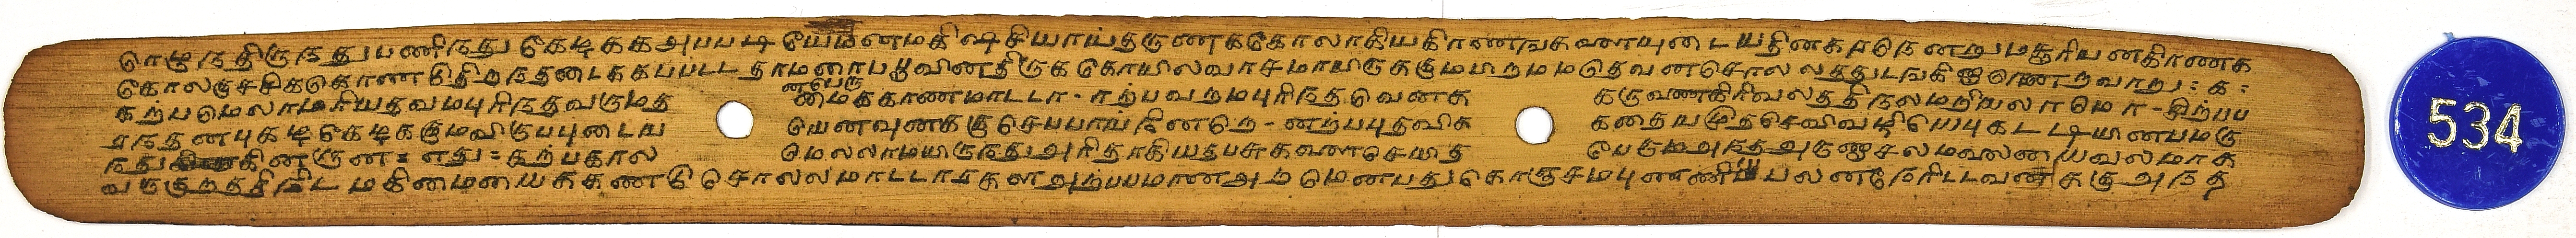 டொழுநதிருநது பணிநது கேடிகக அபபடியே மினமகிஷசியாயதருணககோலாகிய கிரணஙகளையுடைய தினகரநெனறு மசூரியனகிரணக
கோலகுசசிககொண டுதிறநதடைககபபடட தாமரைபபூவினதிருக கோயிலவாசமாயிருககுமபிறமமதெவன சொலலததுடஙகினானறவாறு : க :
கறபமெலாமரியதவமபுரிநதவருமத மைககாணமாடடா - ரறபவறமபுரிநத வெனக கருவணகிரிவலததி நலமறியலாமொ - திறபப
ரநதனபுகடிகேடககுமவிருபபுடைய யெனவுனககுசெபபாயநினறெ - னறபபுதவிக கதையமுதசெவிவழியெபுகடடியினபமகு
நதுகினகுன = எது = கறபகால மெலலாமயிருநது அரிதாகியதபசுகளைசெயித பெருமஅநதஅருணாசலமலையைவலமாக
வருகுறததினிட மகிமையைககணடு சொலலமாடடாரகள அறபபமான அறமெனபது கொஞசமபுணணியபலனநேரிடடவனககு அநத
னபெரு
534